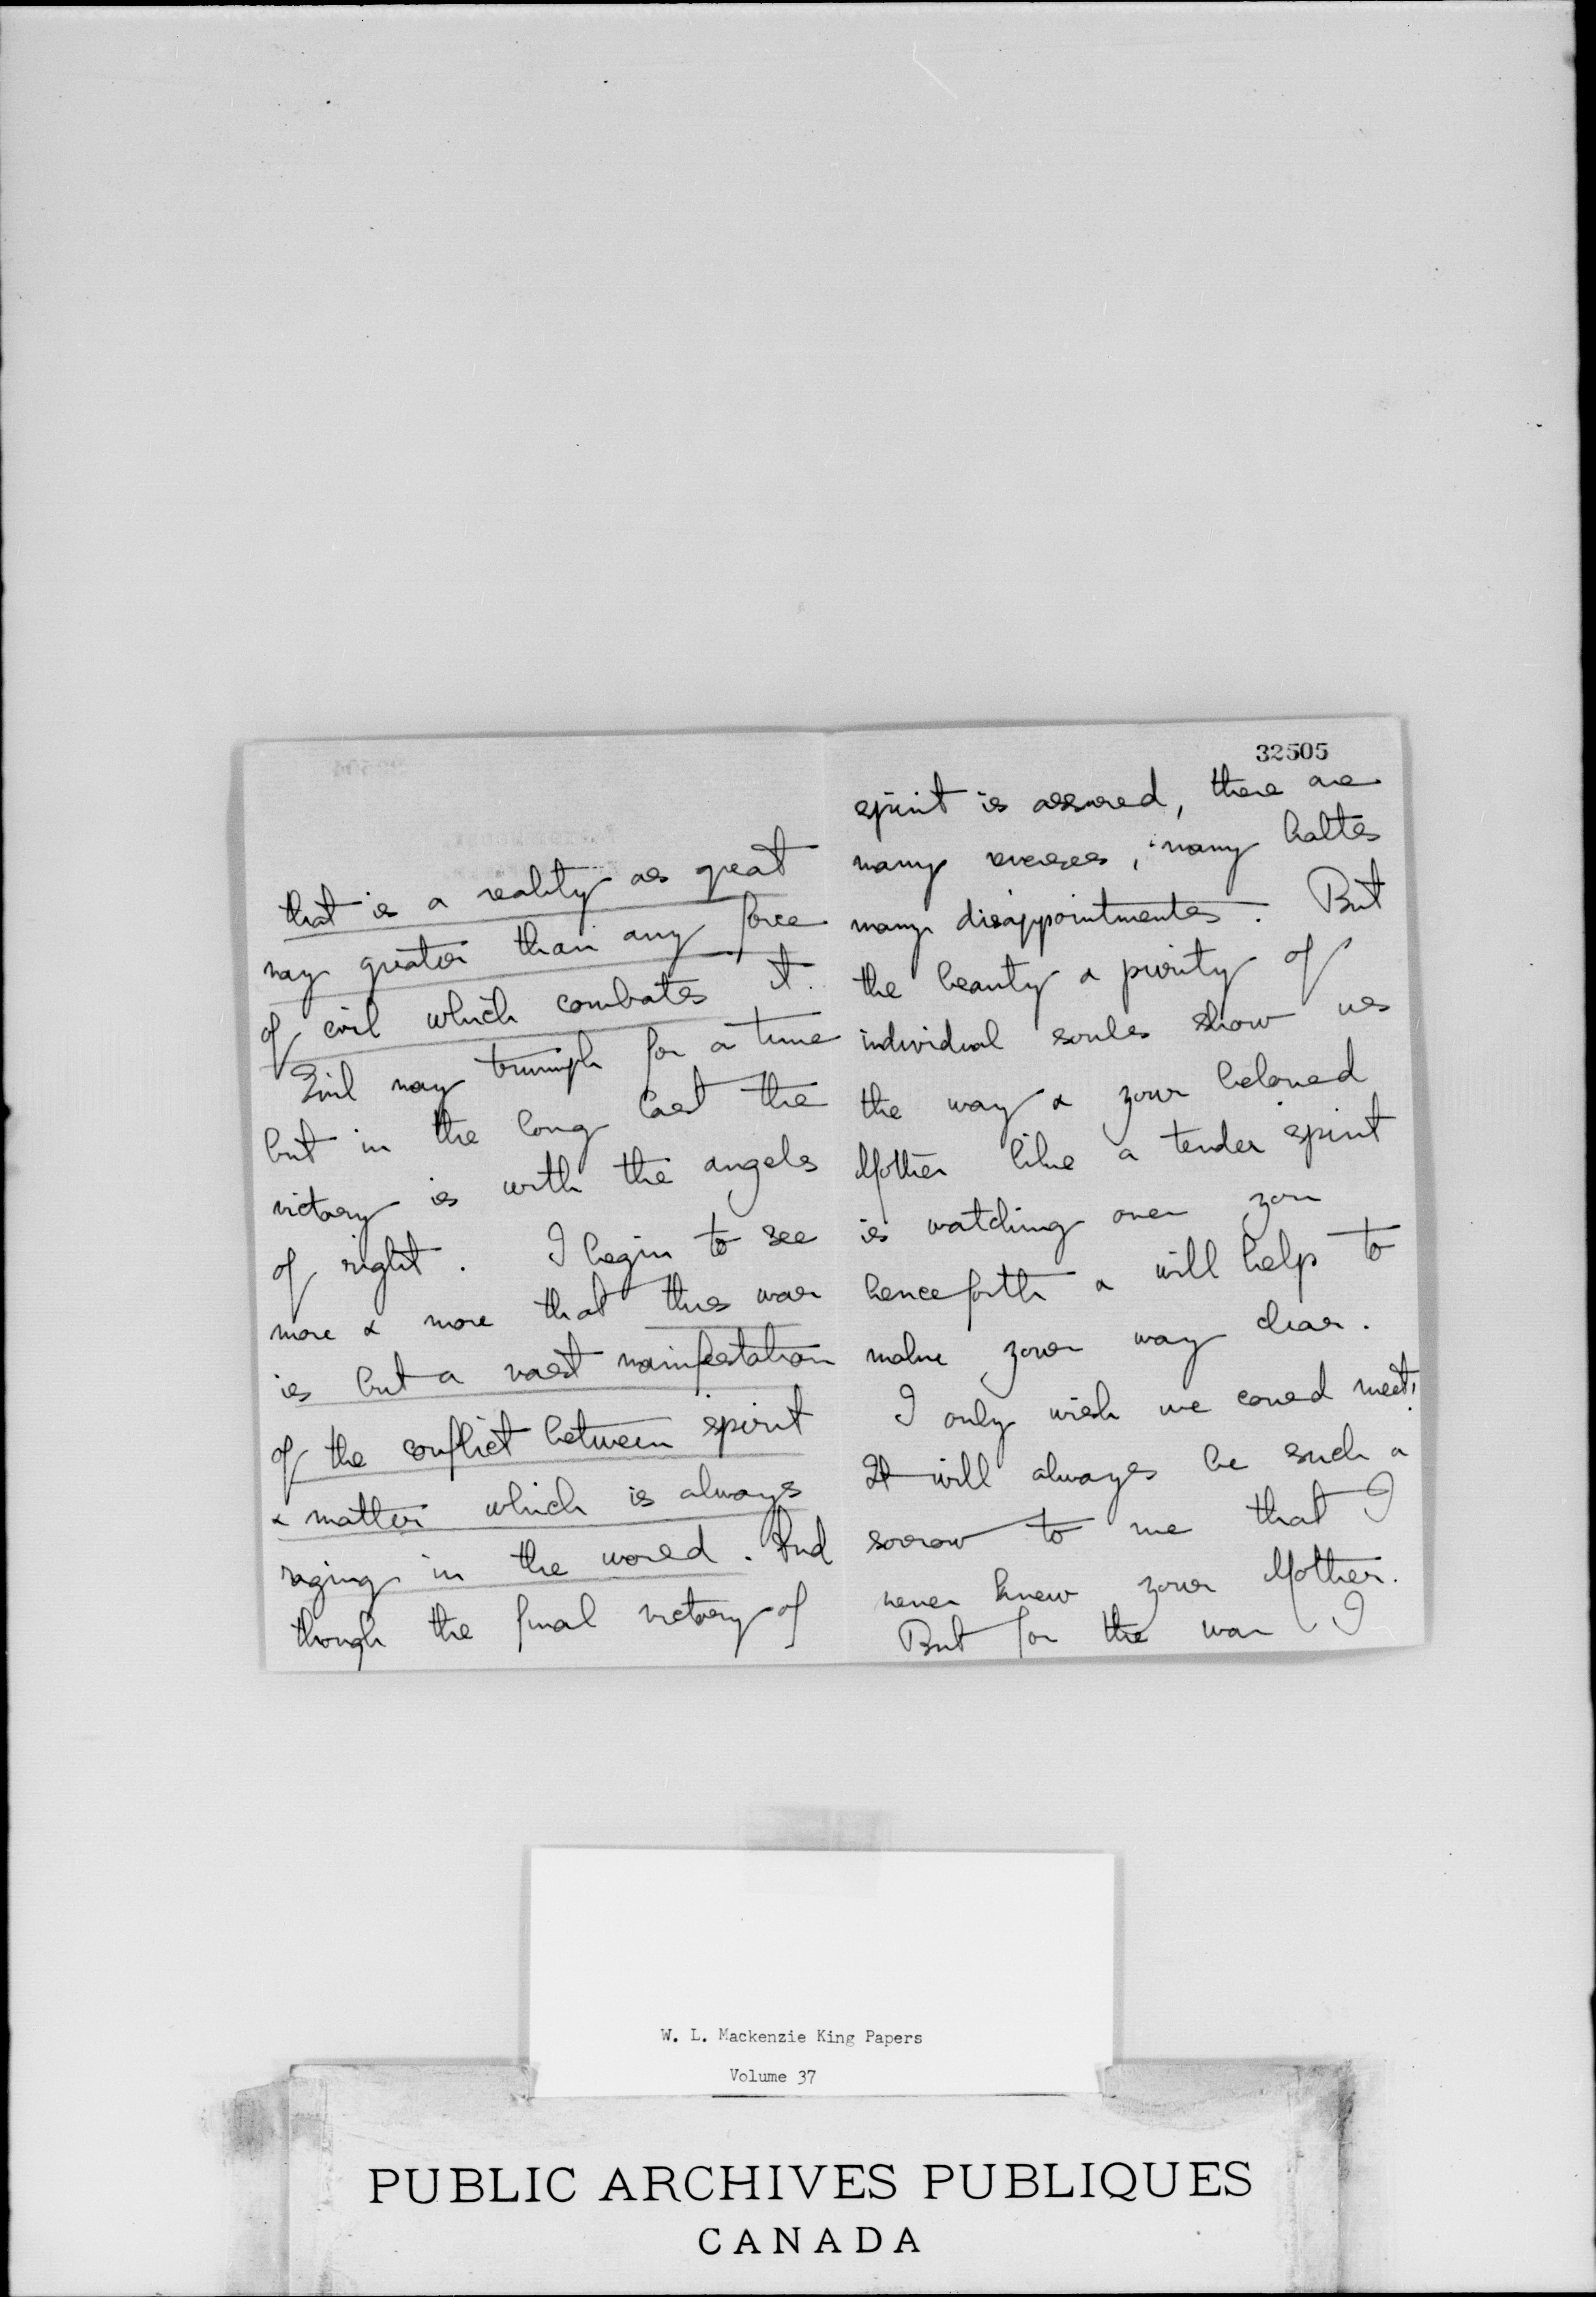 that is a reality as great
nay greater than any force
of evil which combats it.
Evil may triumph for a time
but in the long last the
victory is with the angels
of right. I begin to see
more & more that this war
is but a vast manifestation
of the conflict between spirit
& matter which is always
raging in the world. And
though the final victory of
32505
spirit is assured, there are
many reverses, many halts
many disappointments. But
the beauty & purity of
individual souls show us
the way & your beloved
Mother like a tender spirit
is watching over you
henceforth & will help to
make your way clear.
I only wish we could meet!
It will always be such a
sorrow to me that I
never knew your Mother.
But for the war I
W. L. Mackenzie King Papers
Volume 37
PUBLIC ARCHIVES PUBLIQUES
CANADA